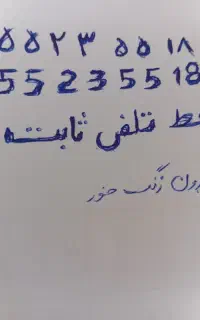 ۵۵۲۳۵۵۱۸
55235518
خط تلفن ثابته
بدون زنگ خور